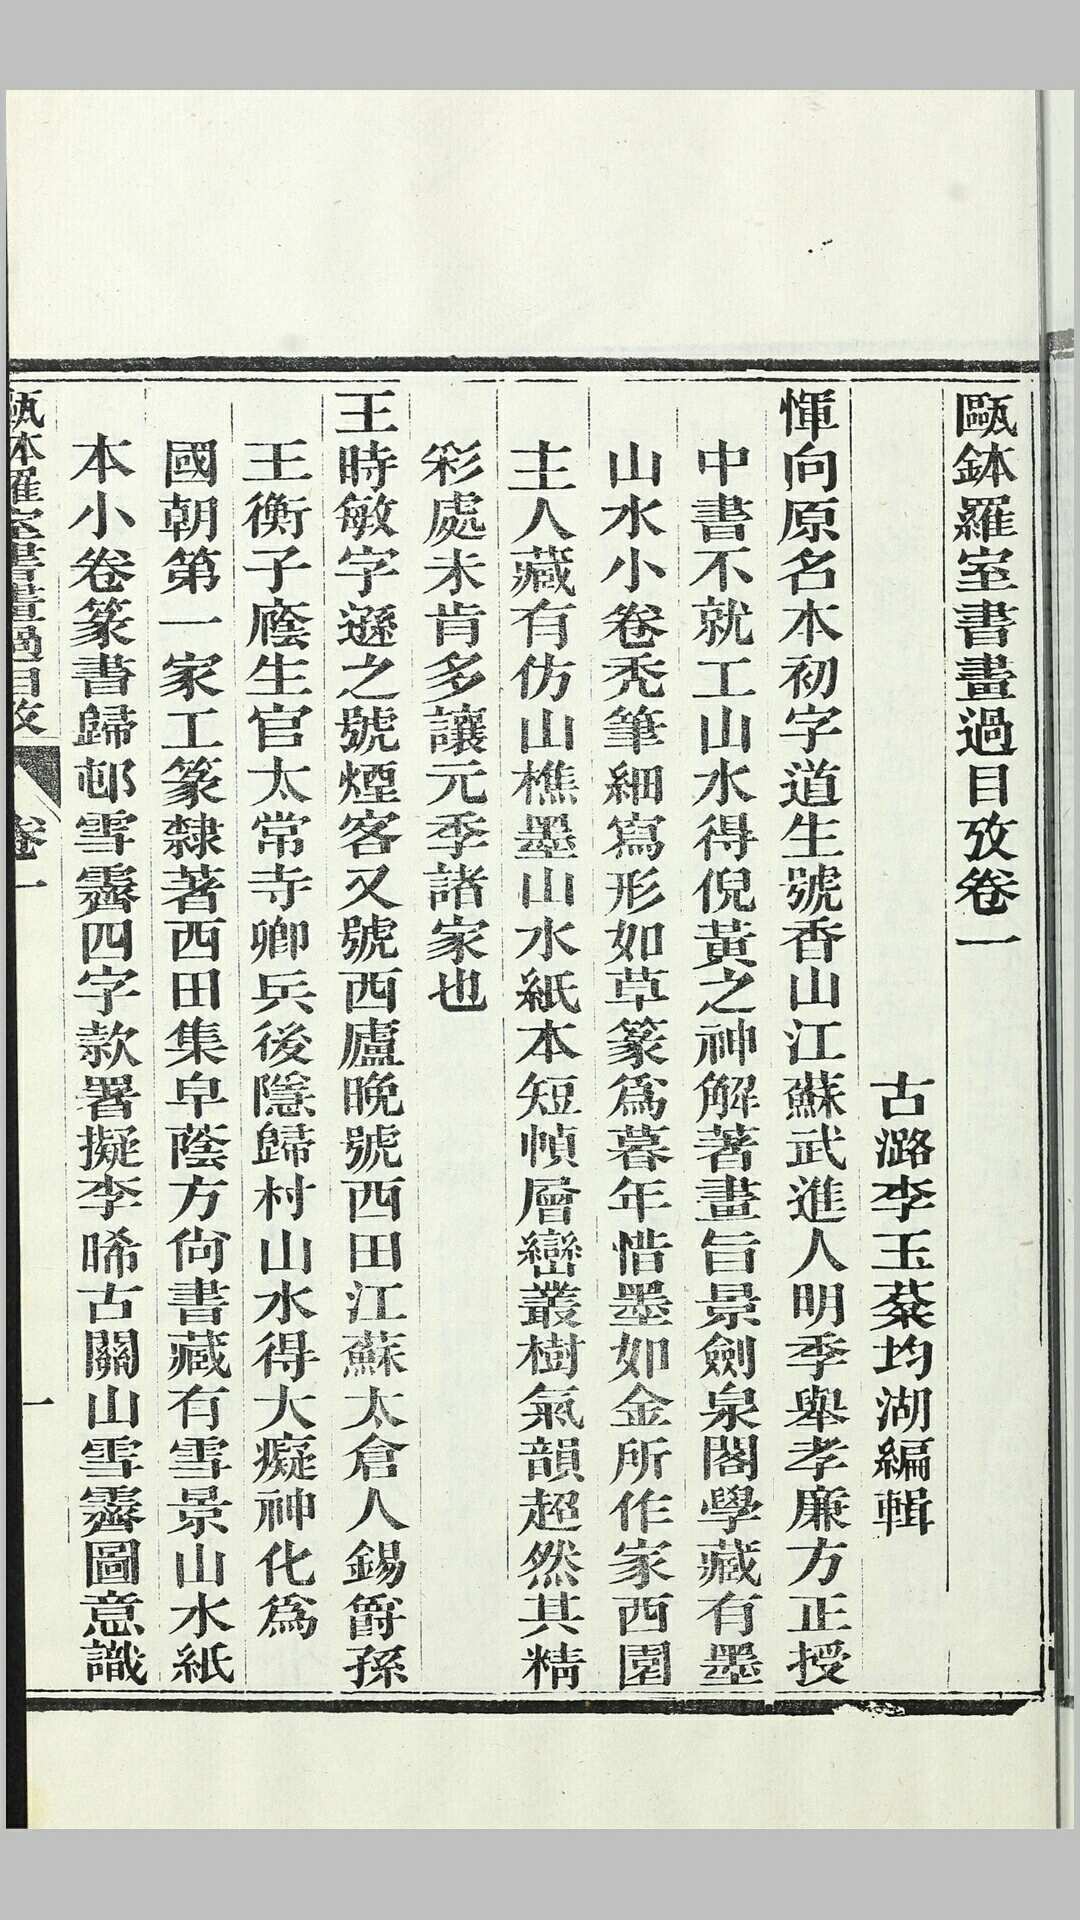 甌鉢羅室書畫過目攷卷一
古潞李玉棻均湖編輯
惲向原名本初字道生號香山江蘇武進人明季舉孝廉方正授
中書不就工山水得倪黃之神解著畫旨景劍泉閣學藏有墨
山水小卷禿筆細寫形如草篆爲暮年惜墨如金所作家西園
主人藏有仿山樵墨山水紙本短幀層巒叢樹氣韻超然其精
彩處未肯多讓元季諸家也
王時敏字遜之號煙客又號西廬晚號西田江蘇太倉人錫爵孫
王衡子廕生官太常寺卿兵後隱歸村山水得大癡神化爲
國朝第一家工篆隸著西田集卓蔭方尙書藏有雪景山水紙
本小卷篆書歸邨雪霽四字款署擬李晞古關山雪霽圖意識
甌鉢羅室書畫過目攷 卷一 一